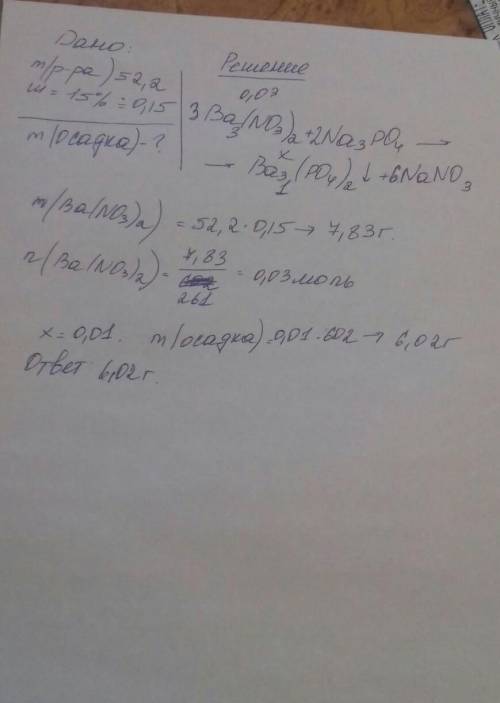 Дано:
m(р-ра) 52,2
w = 15% = 0,15
m(осадка)-?
Решение
0,03
3Ba(NO3)2+2Na3PO4 →
3
x
→ Ba3(PO4)2↓+6NaNO3
1
m(Ba(NO3)2) = 52,2·0,15→ 7,83г.
n(Ba(NO3)2)= 7,83/261 = 0,03моль
x=0,01. m(осадка)=0,01·602→ 6,02г
Ответ 6,02г.